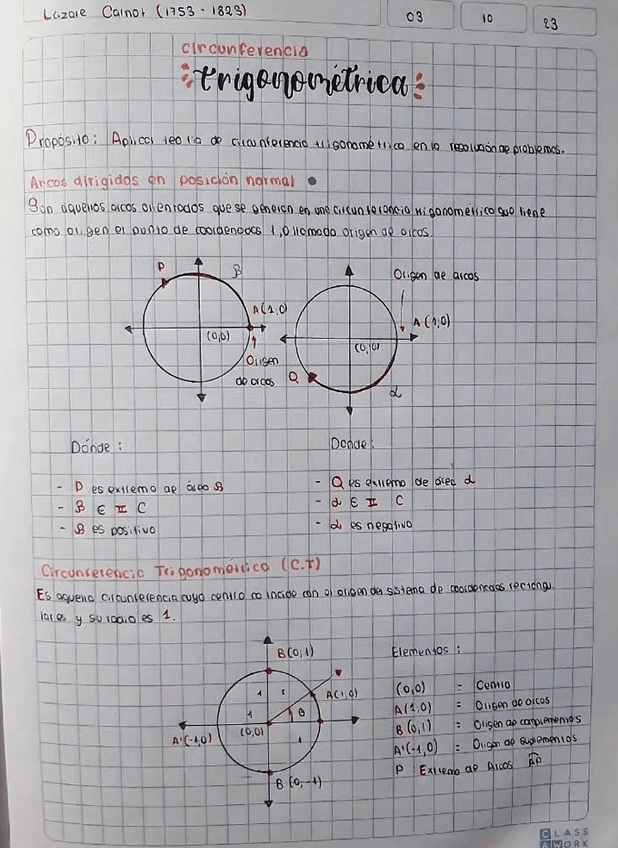 Lazare Carnot (1753 - 1823)
03 10 23
circunferencia
trigonométrica
Propósito: Aplicar teoria de circunferencia trigonométrica en la resolución de problemas.
Arcos dirigidos en posición normal
Son aquellos arcos orientados que se generan en una circunferencia trigonométrica que tiene
como origen el punto de coordenadas 1,0 llamado origen de arcos.
P β
A(1,0)
(0,0)
Origen
de arcos
Origen de arcos
A(1,0)
(0,0)
Q
α
Dónde:
- P es extremo de arco β
- β ∈ II C
- β es positivo
Donde:
- Q es extremo de arco α
- α ∈ II C
- α es negativo
Circunferencia Trigonométrica (C.T)
Es aquella circunferencia cuyo centro coincide con el origen del sistema de coordenadas rectangu
lares y su radio es 1.
B(0,1)
1
A(1,0)
1 θ
(0,0)
A'(-1,0)
1
B(0,-1)
Elementos:
(0,0) = Centro
A(1,0) = Origen de arcos
B(0,1) = Origen de complementos
A'(-1,0) = Origen de suplementos
P: Extremo de Arcos AP
CLASS
WORK